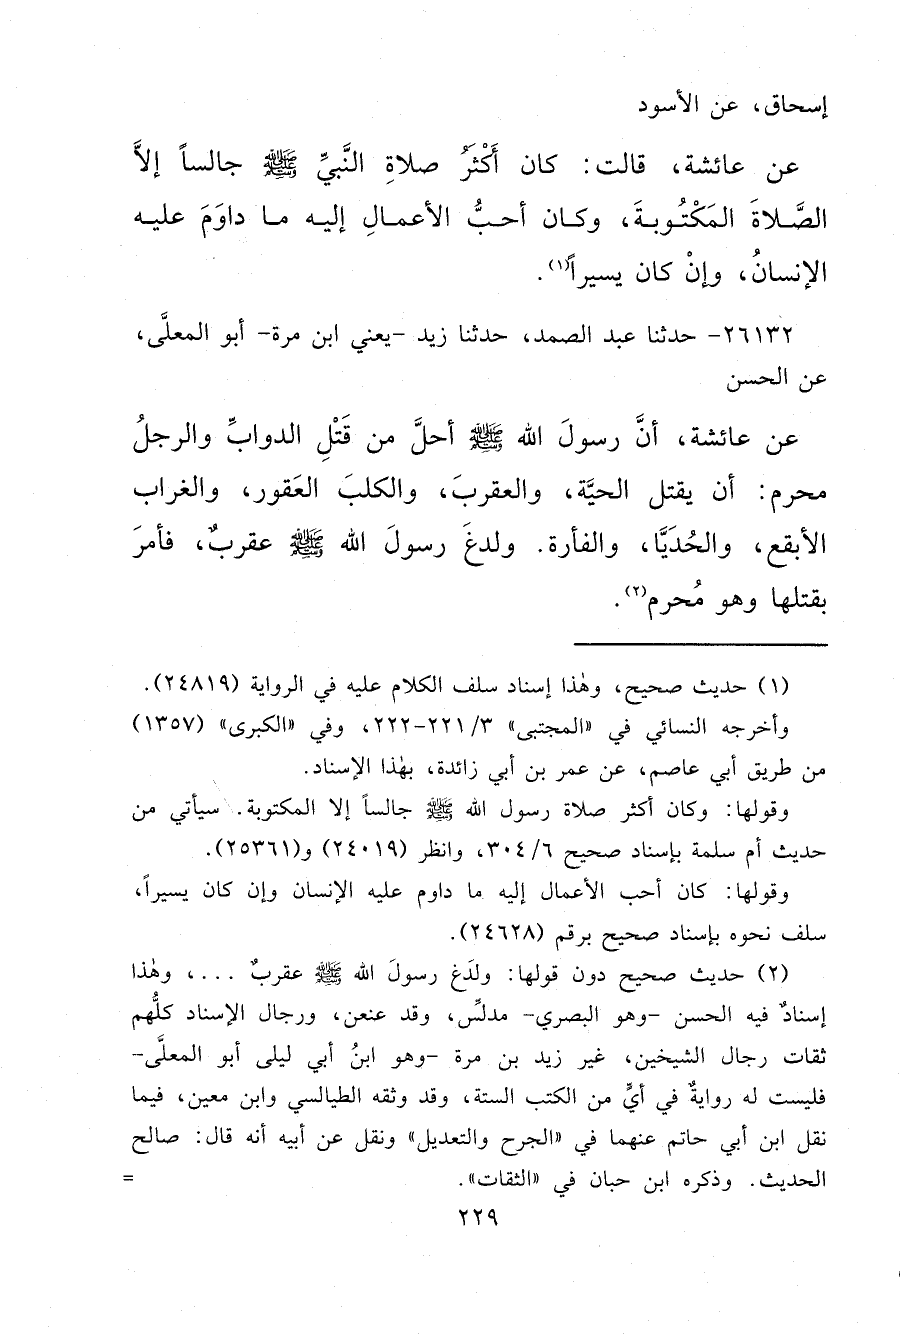 إسحاق، عن الأسود
عن عائشة، قالت: كان أَكْثَرُ صلاةِ النَّبيِّ ﷺ جالساً إلاَّ
الصَّلاةَ المَكْتُوبةَ، وكان أحبُّ الأعمالِ إليه ما داوَمَ عليه
الإنسانُ، وإنْ كان يسيراً(١).
٢٦١٣٢- حدثنا عبد الصمد، حدثنا زيد -يعني ابن مرة- أبو المعلَّى،
عن الحسن
عن عائشة، أنَّ رسولَ الله ﷺ أحلَّ من قَتْلِ الدوابِّ والرجلُ
محرم: أن يقتل الحيَّة، والعقربَ، والكلبَ العَقور، والغراب
الأبقع، والحُدَيَّا، والفأرة. ولدغَ رسولَ الله ﷺ عقربٌ، فأمرَ
بقتلها وهو مُحرم(٢).
(١) حديث صحيح، وهٰذا إسناد سلف الكلام عليه في الرواية (٢٤٨١٩).
وأخرجه النسائي في «المجتبى» ٣/ ٢٢١-٢٢٢، وفي «الكبرى» (١٣٥٧)
من طريق أبي عاصم، عن عمر بن أبي زائدة، بهٰذا الإسناد.
وقولها: وكان أكثر صلاة رسول الله ﷺ جالساً إلا المكتوبة. سيأتي من
حديث أم سلمة بإسناد صحيح ٦/ ٣٠٤، وانظر (٢٤٠١٩) و(٢٥٣٦١).
وقولها: كان أحب الأعمال إليه ما داوم عليه الإنسان وإن كان يسيراً،
سلف نحوه بإسناد صحيح برقم (٢٤٦٢٨).
(٢) حديث صحيح دون قولها: ولدَغ رسولَ الله ﷺ عقربٌ ...، وهٰذا
إسنادٌ فيه الحسن -وهو البصري- مدلِّس، وقد عنعن، ورجال الإسناد كلُّهم
ثقات رجال الشيخين، غير زيد بن مرة -وهو ابنُ أبي ليلى أبو المعلَّى-
فليست له روايةٌ في أيٍّ من الكتب الستة، وقد وثقه الطيالسي وابن معين، فيما
نقل ابن أبي حاتم عنهما في «الجرح والتعديل» ونقل عن أبيه أنه قال: صالح
الحديث. وذكره ابن حبان في «الثقات». =
٢٢٩